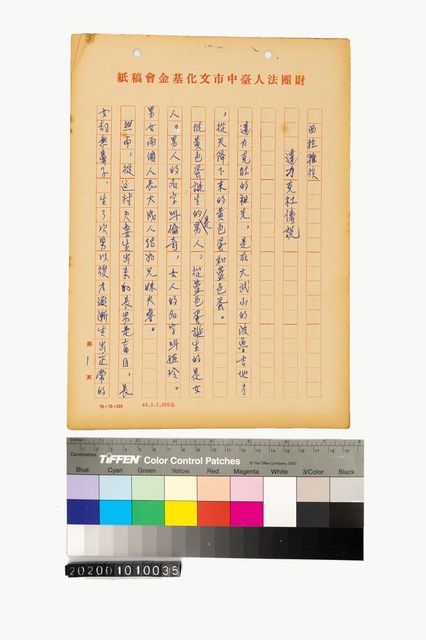 財團法人臺中市文化基金會稿紙
西拉雅族
達力克社傳說
達力克社的祖先，是在大武山的
，從天降下來的黃色蛋和藍色蛋。
從黃色蛋誕生的是男人，從藍色蛋誕生的是女
人。男人的名字叫偷奇，女人的名字叫
男女兩個人長大成人結為兄妹夫妻。
然而，從這對夫妻生出來的長男是盲目，長
女却無鼻子，生了次男以後才逐漸生出正常的
第1頁
Inches
Centimetres
TIFFEN Color Control Patches
© The Tiffen Company, 2007
Blue Cyan Green Yellow Red Magenta White 3/Color Black
202001010035